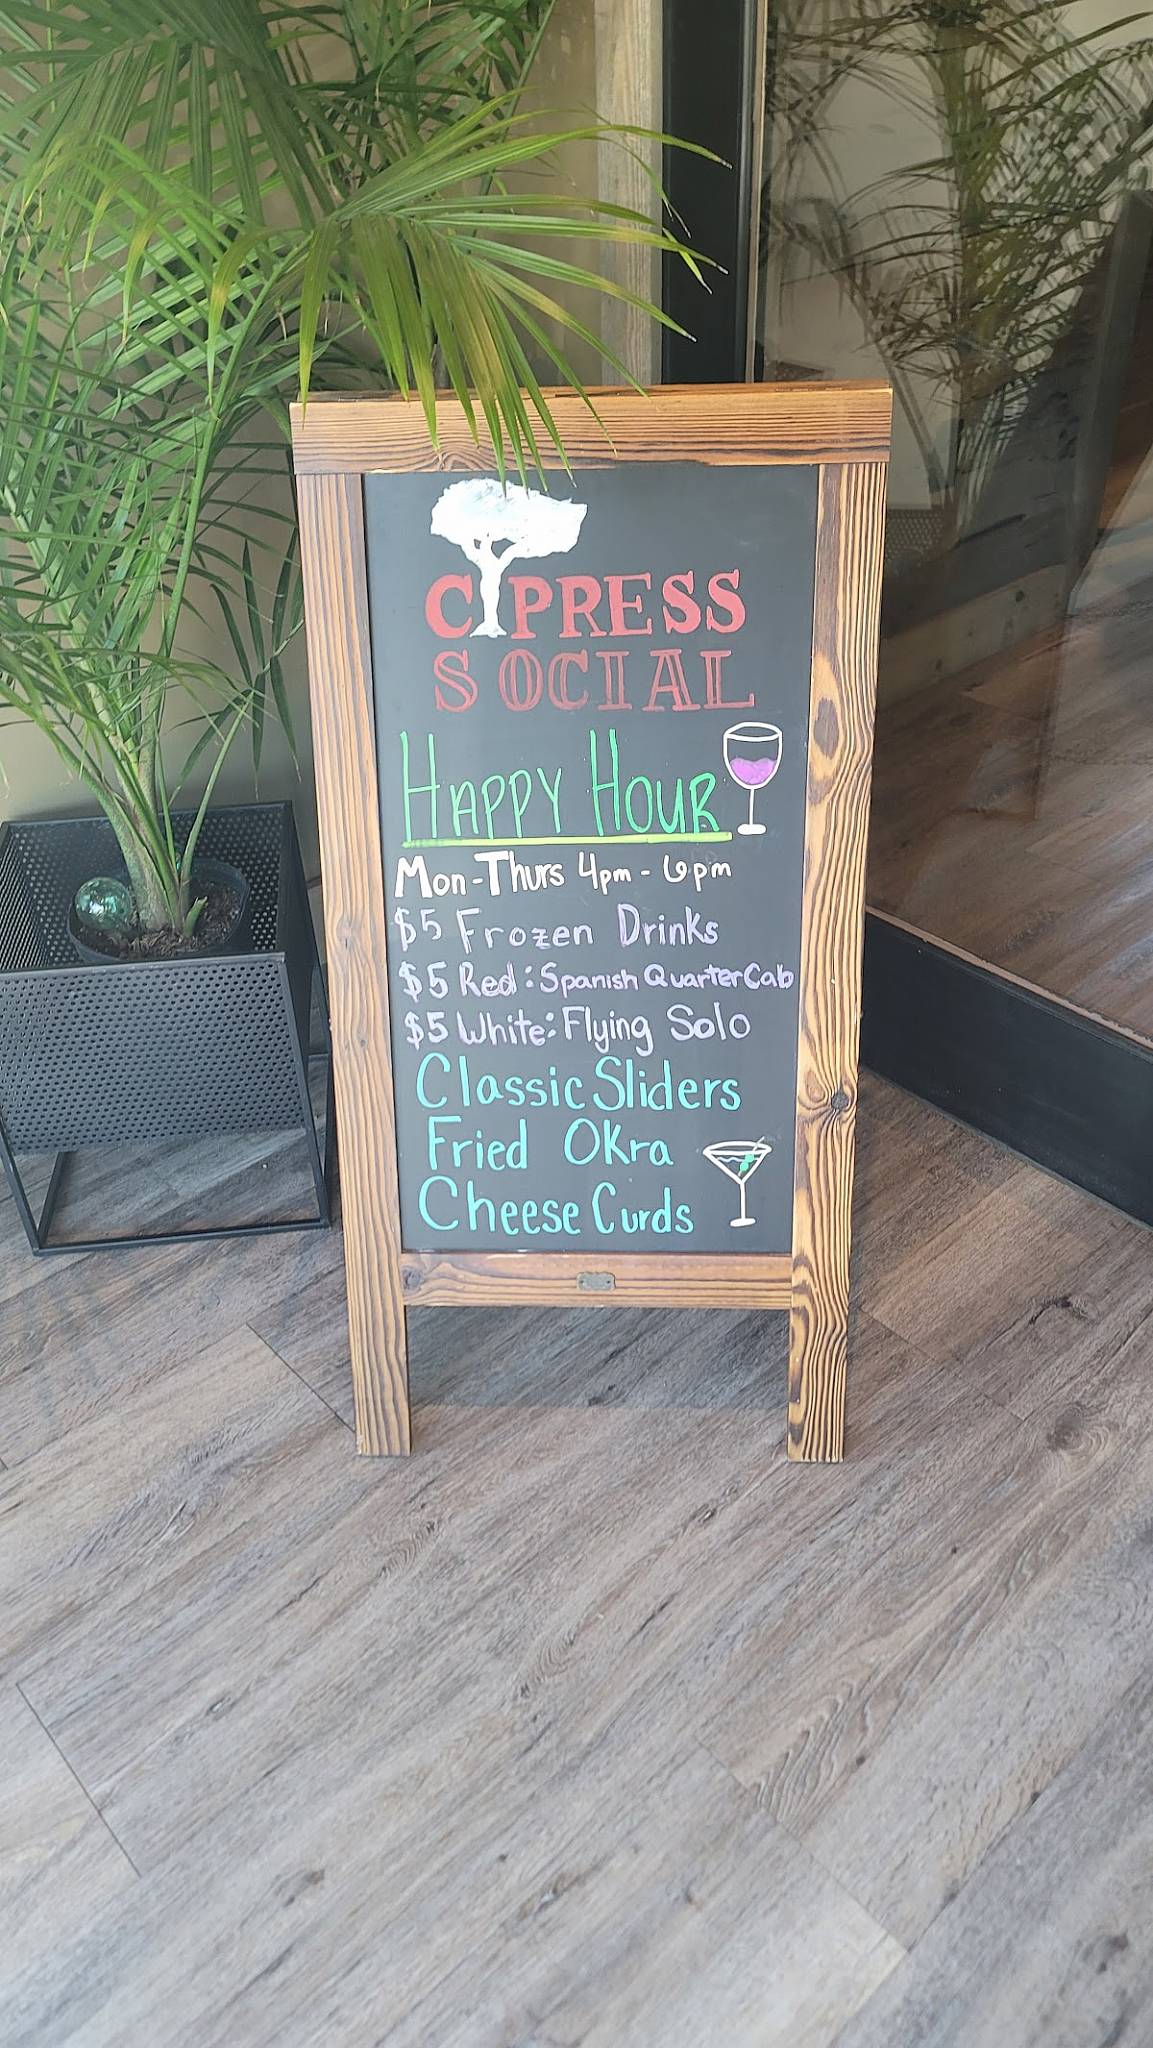 CYPRESS
SOCIAL
HAPPY HOUR
Mon-Thurs 4pm - 6pm
$5 Frozen Drinks
$5 Red: Spanish Quarter Cab
$5 White: Flying Solo
Classic Sliders
Fried Okra
Cheese Curds